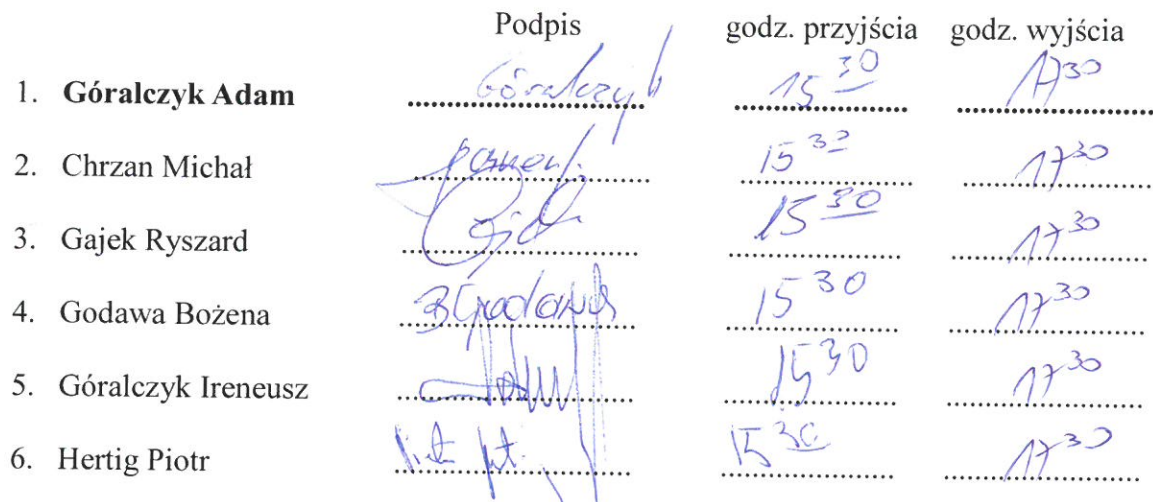 Podpis godz. przyjścia godz. wyjścia
1. Góralczyk Adam Góralczyk 15 30 17 30
2. Chrzan Michał 15 17 30
3. Gajek Ryszard 15 30 17 30
4. Godawa Bożena BGodawa 15 30 17 30
5. Góralczyk Ireneusz 15 30 17 30
6. Hertig Piotr 15 30 17 30